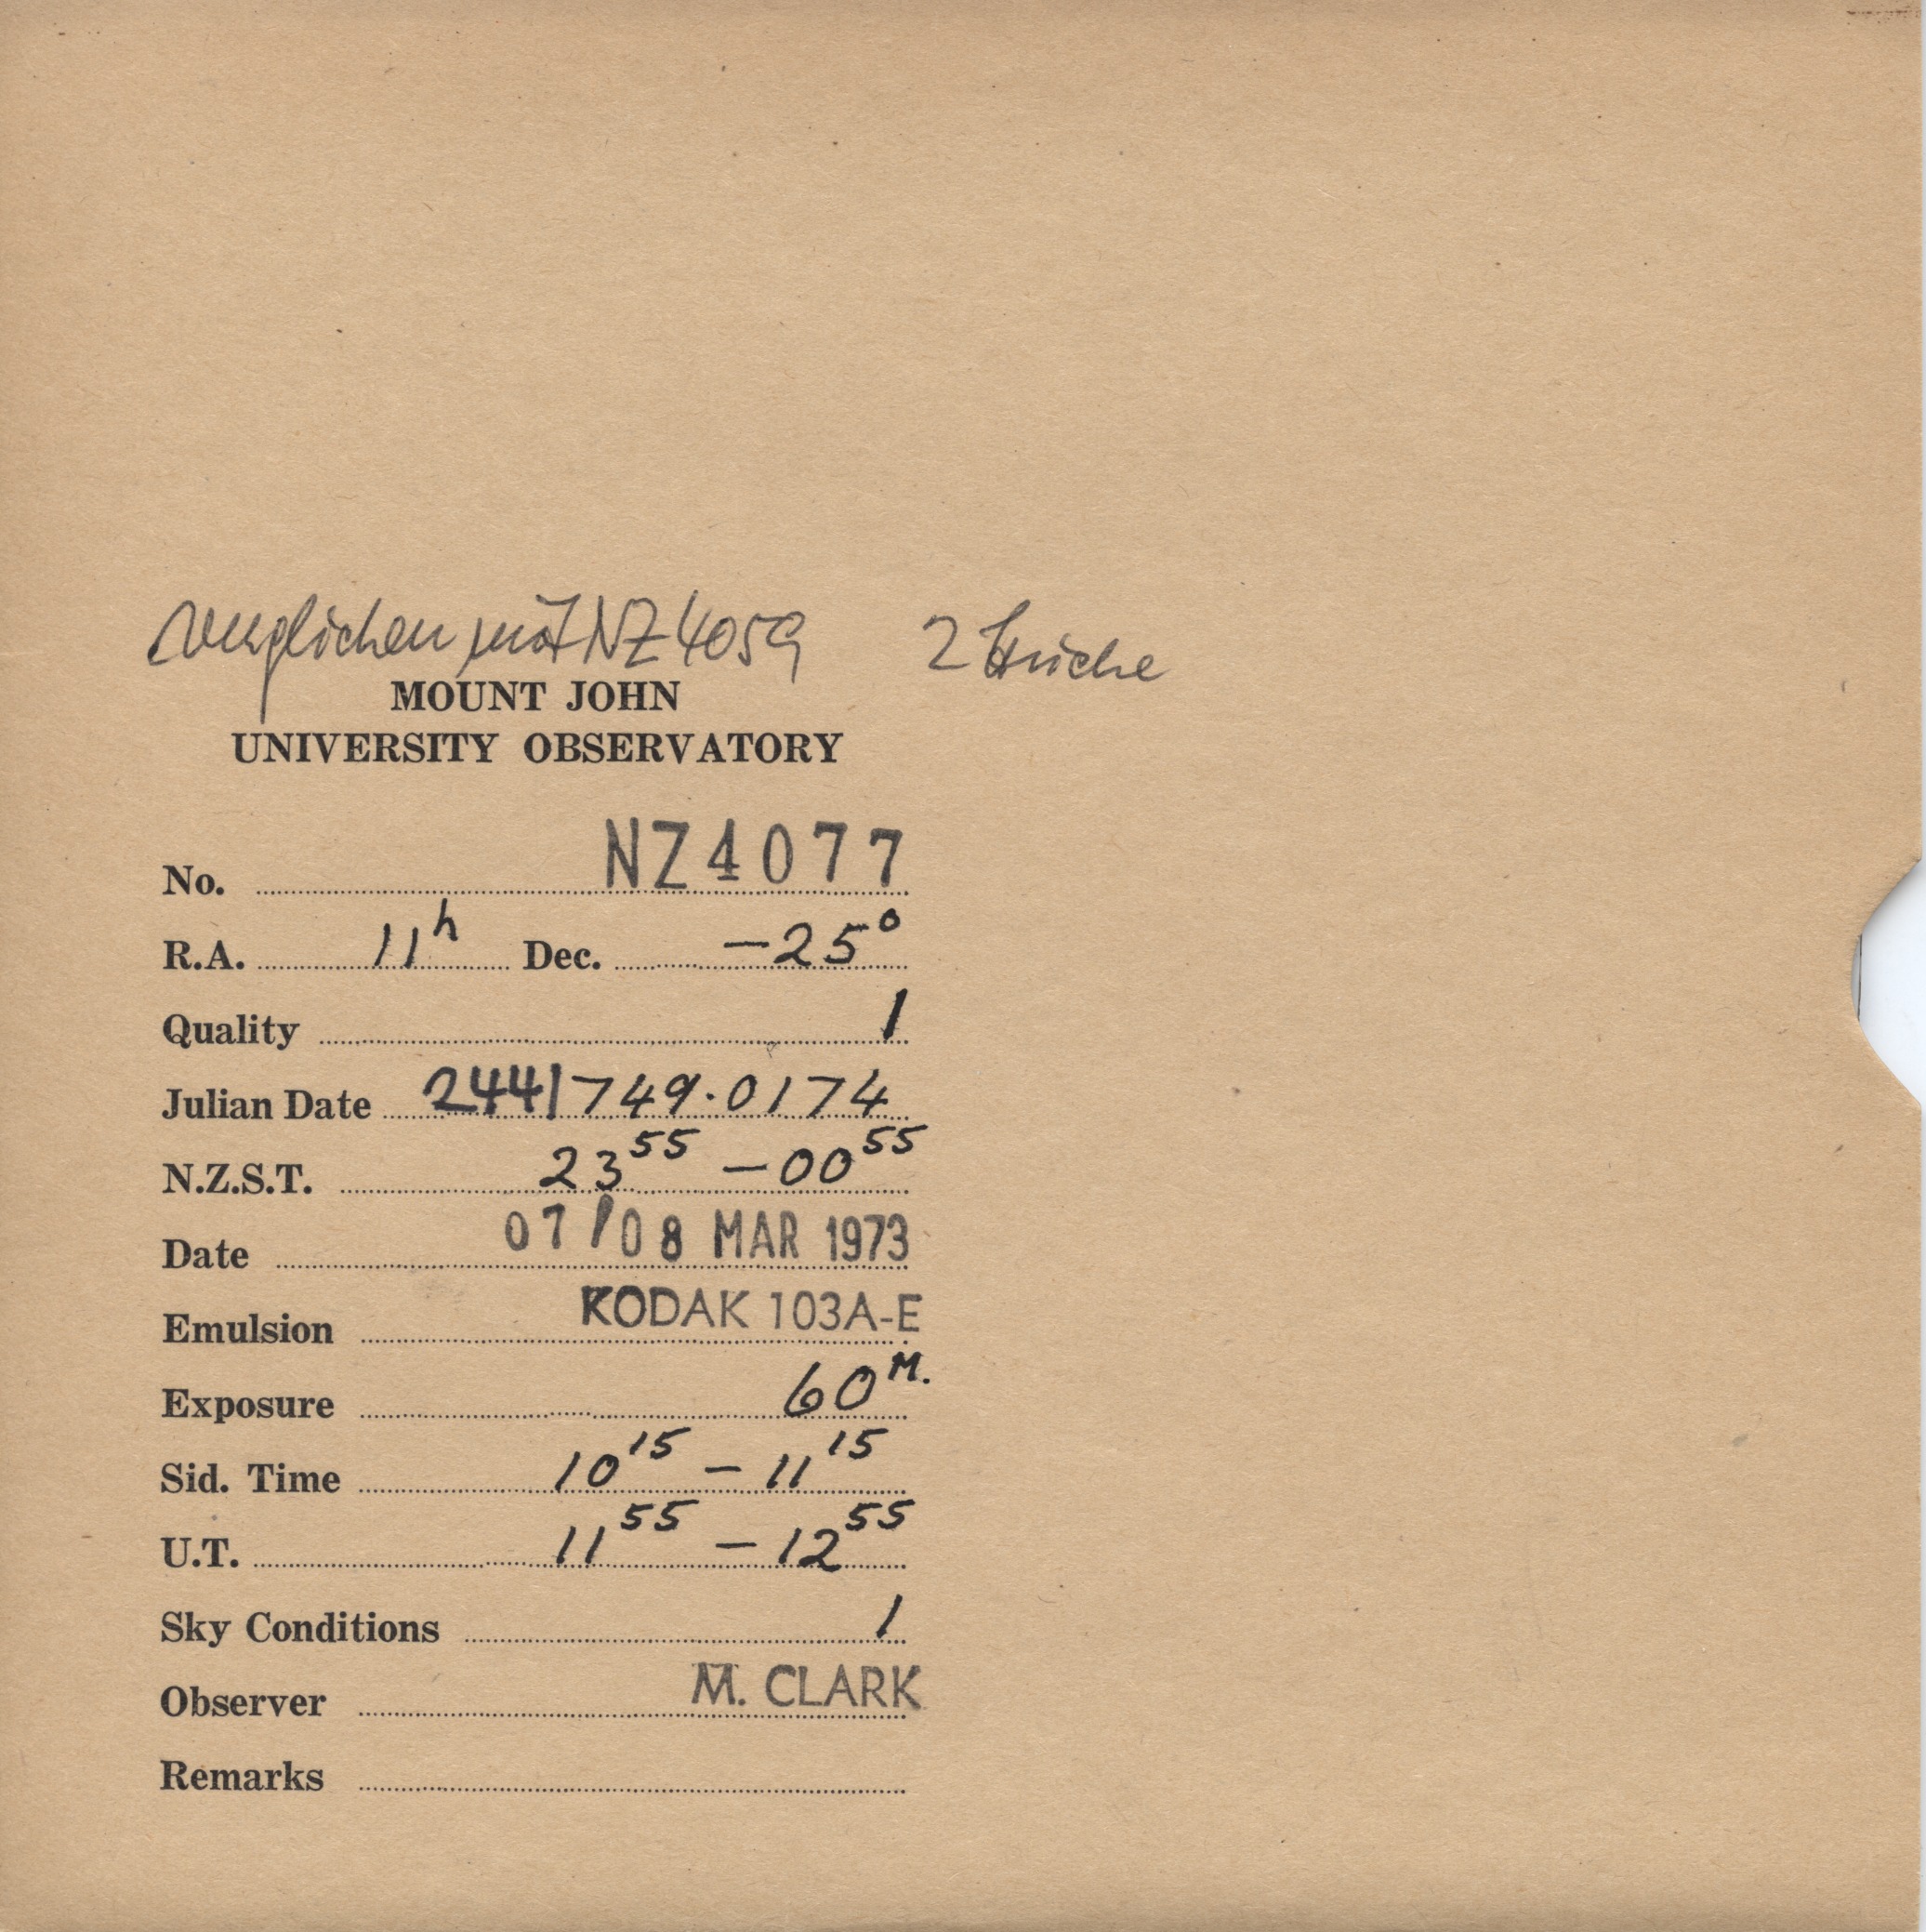 verglichen mit NZ 4059 2 Striche
MOUNT JOHN
UNIVERSITY OBSERVATORY
No. NZ4077
R.A. 11h Dec. -25°
Quality 1
Julian Date 2441749.0174
N.Z.S.T. 23 55 - 00 55
Date 07/08 MAR 1973
Emulsion KODAK 103A-E
Exposure 60 M.
Sid. Time 10 15 - 11 15
U.T. 11 55 - 12 55
Sky Conditions 1
Observer M. CLARK
Remarks